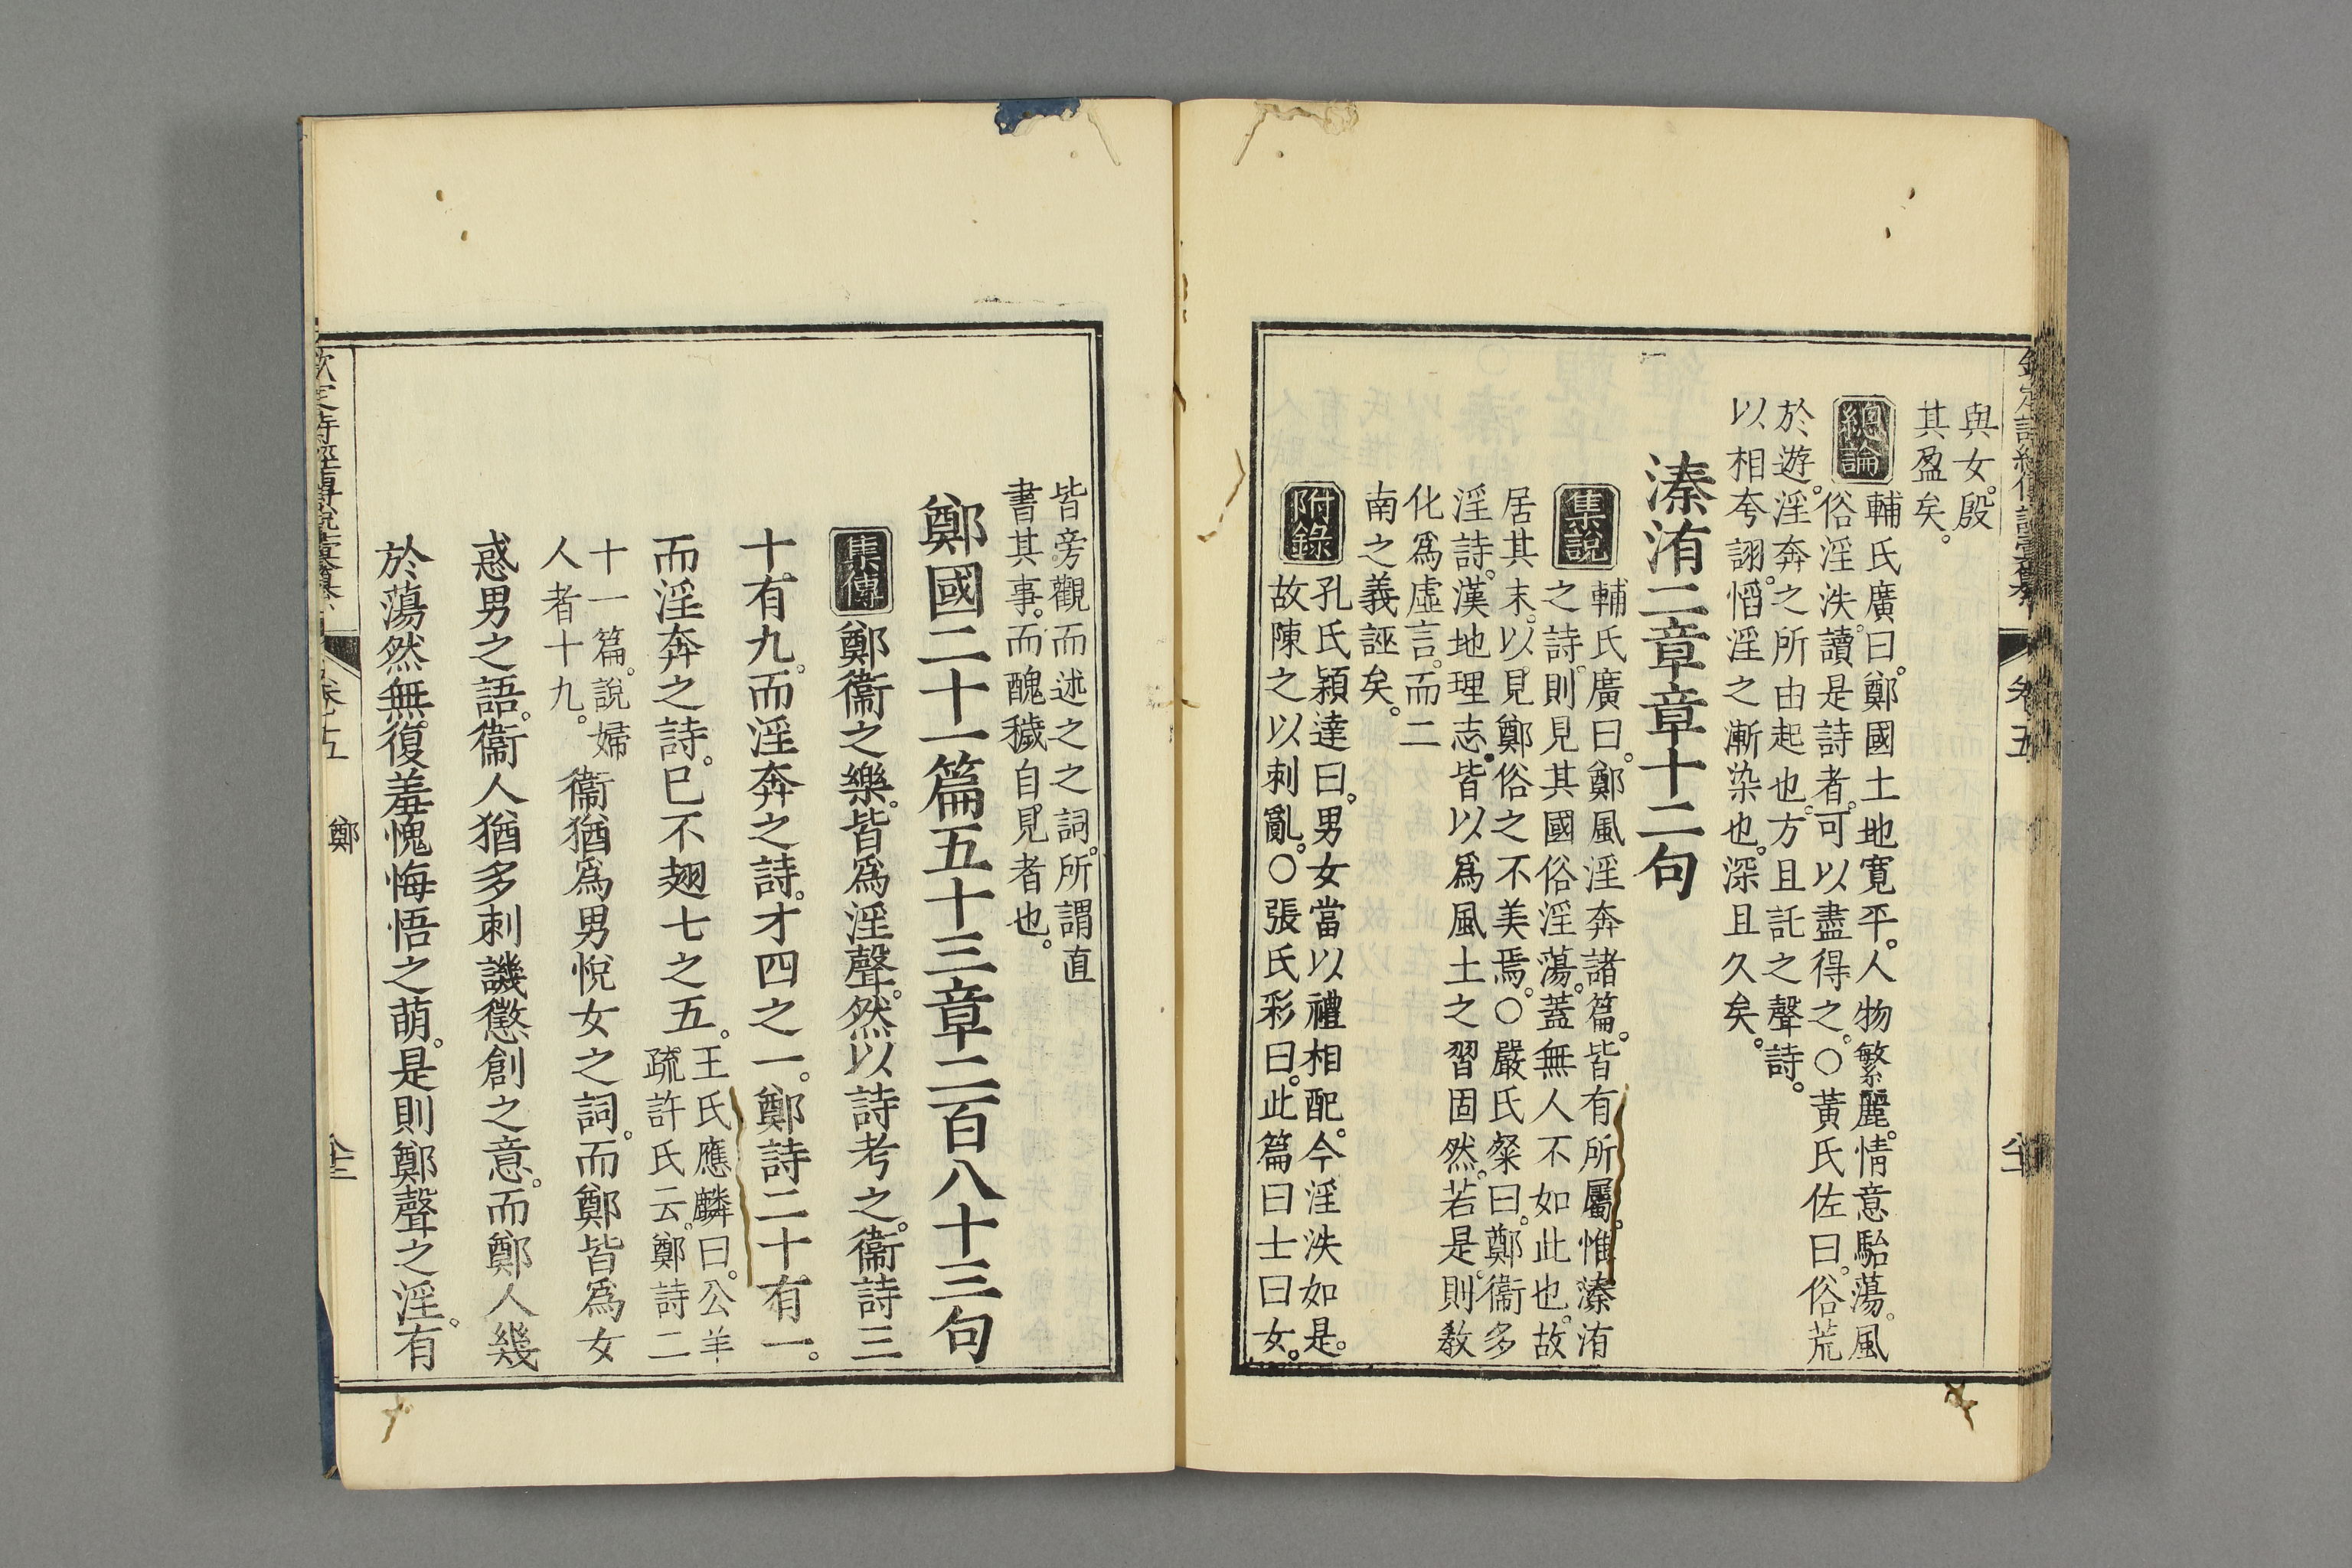 與女。殷
其盈矣。
總論
輔氏廣曰。鄭國土地寬平。人物繁麗。情意駘蕩。風
俗淫泆。讀是詩者。可以盡得之。○黃氏佐曰。俗荒
於遊。淫奔之所由起也。方且託之聲詩。
以相夸詡。慆淫之漸染也。深且久矣。
溱洧二章章十二句
集說
輔氏廣曰。鄭風淫奔諸篇。皆有所屬。惟溱洧
之詩。則見其國俗淫蕩。蓋無人不如此也。故
居其末。以見鄭俗之不美焉。○嚴氏粲曰。鄭衞多
淫詩。漢地理志。皆以爲風土之習固然。若是。則敎
化爲虛言。而二
南之義誣矣。
附錄
孔氏穎達曰。男女當以禮相配。今淫泆如是。
故陳之以刺亂。○張氏彩曰。此篇曰士曰女。
卷五
皆旁觀而述之之詞。所謂直
書其事。而醜穢自見者也。
鄭國二十一篇五十三章二百八十三句
集傳
鄭衞之樂。皆爲淫聲。然以詩考之。衞詩三
十有九。而淫奔之詩。才四之一。鄭詩二十有一。
而淫奔之詩。已不翅七之五。
王氏應麟曰。公羊
疏。許氏云。鄭詩二
十一篇。說婦
人者十九。
衞猶爲男悅女之詞。而鄭皆爲女
惑男之語。衞人猶多刺譏懲創之意。而鄭人幾
於蕩然無復羞愧悔悟之萌。是則鄭聲之淫。有
鄭